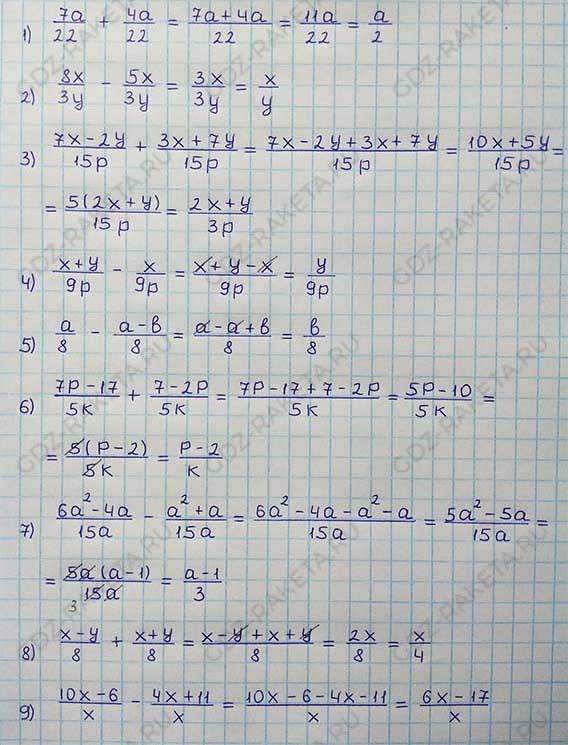 1) 7a/22 + 4a/22 = (7a+4a)/22 = 11a/22 = a/2
2) 8x/3y − 5x/3y = 3x/3y = x/y
3) (7x−2y)/15p + (3x+7y)/15p = (7x−2y+3x+7y)/15p = (10x+5y)/15p =
= 5(2x+y)/15p = (2x+y)/3p
4) (x+y)/9p − x/9p = (x+y−x)/9p = y/9p
5) a/8 − (a−в)/8 = (a−a+в)/8 = в/8
6) (7p−17)/5k + (7−2p)/5k = (7p−17+7−2p)/5k = (5p−10)/5k =
= 5(p−2)/5k = (p−2)/k
7) (6a²−4a)/15a − (a²+a)/15a = (6a²−4a−a²−a)/15a = (5a²−5a)/15a =
= 5a(a−1)/15a 3 = (a−1)/3
8) (x−y)/8 + (x+y)/8 = (x−y+x+y)/8 = 2x/8 = x/4
9) (10x−6)/x − (4x+11)/x = (10x−6−4x−11)/x = (6x−17)/x
GDZ-RAKETA.RU